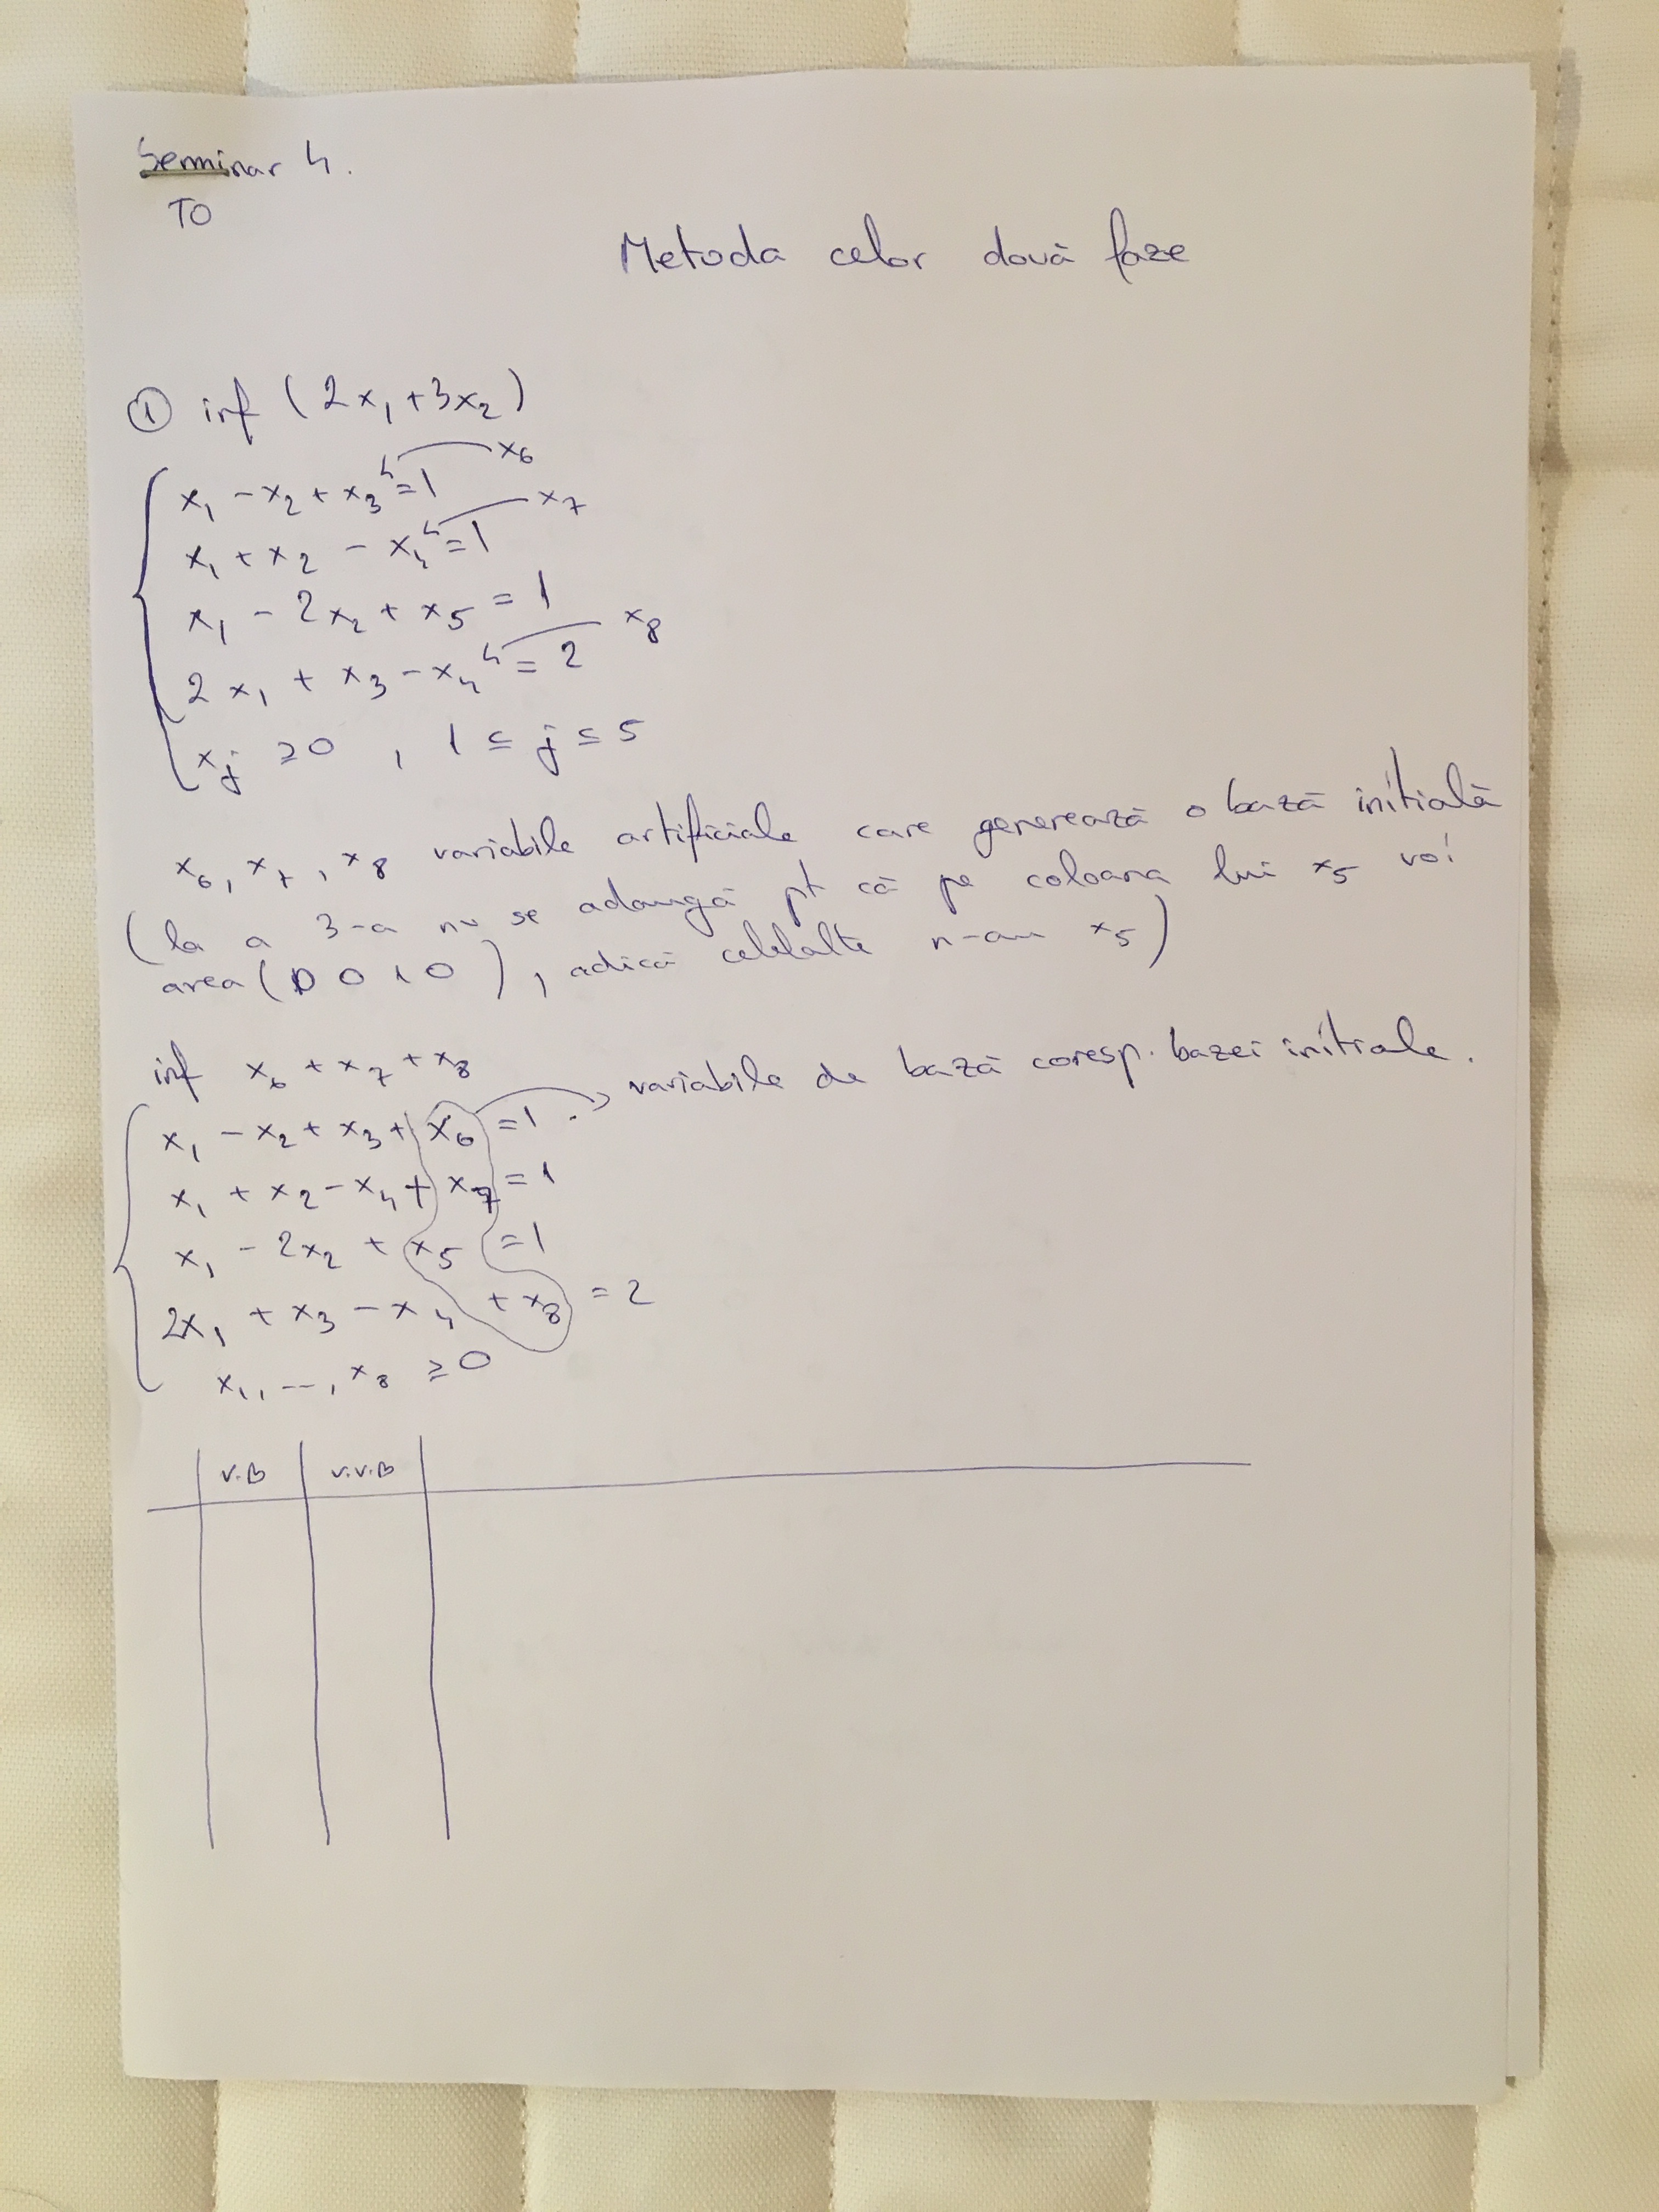 Seminar 4.
TO
Metoda celor două faze
① inf (2x₁+3x₂)
x₁ - x₂ + x₃ = 1 x₆
x₁ + x₂ - x₄ = 1 x₇
x₁ - 2x₂ + x₅ = 1
2x₁ + x₃ - x₄ = 2 x₈
xⱼ ≥ 0 , 1 ≤ j ≤ 5
x₆, x₇, x₈ variabile artificiale care generează o bază initială
(la a 3-a nu se adaugă pt că pe coloana lui x₅ voi
area (0 0 1 0), adică celelalte n-au x₅)
inf x₆ + x₇ + x₈
x₁ - x₂ + x₃ + x₆ = 1 → variabile de bază coresp. bazei initiale.
x₁ + x₂ - x₄ + x₇ = 1
x₁ - 2x₂ + x₅ = 1
2x₁ + x₃ - x₄ + x₈ = 2
x₁, --, x₈ ≥ 0
V.B V.V.B